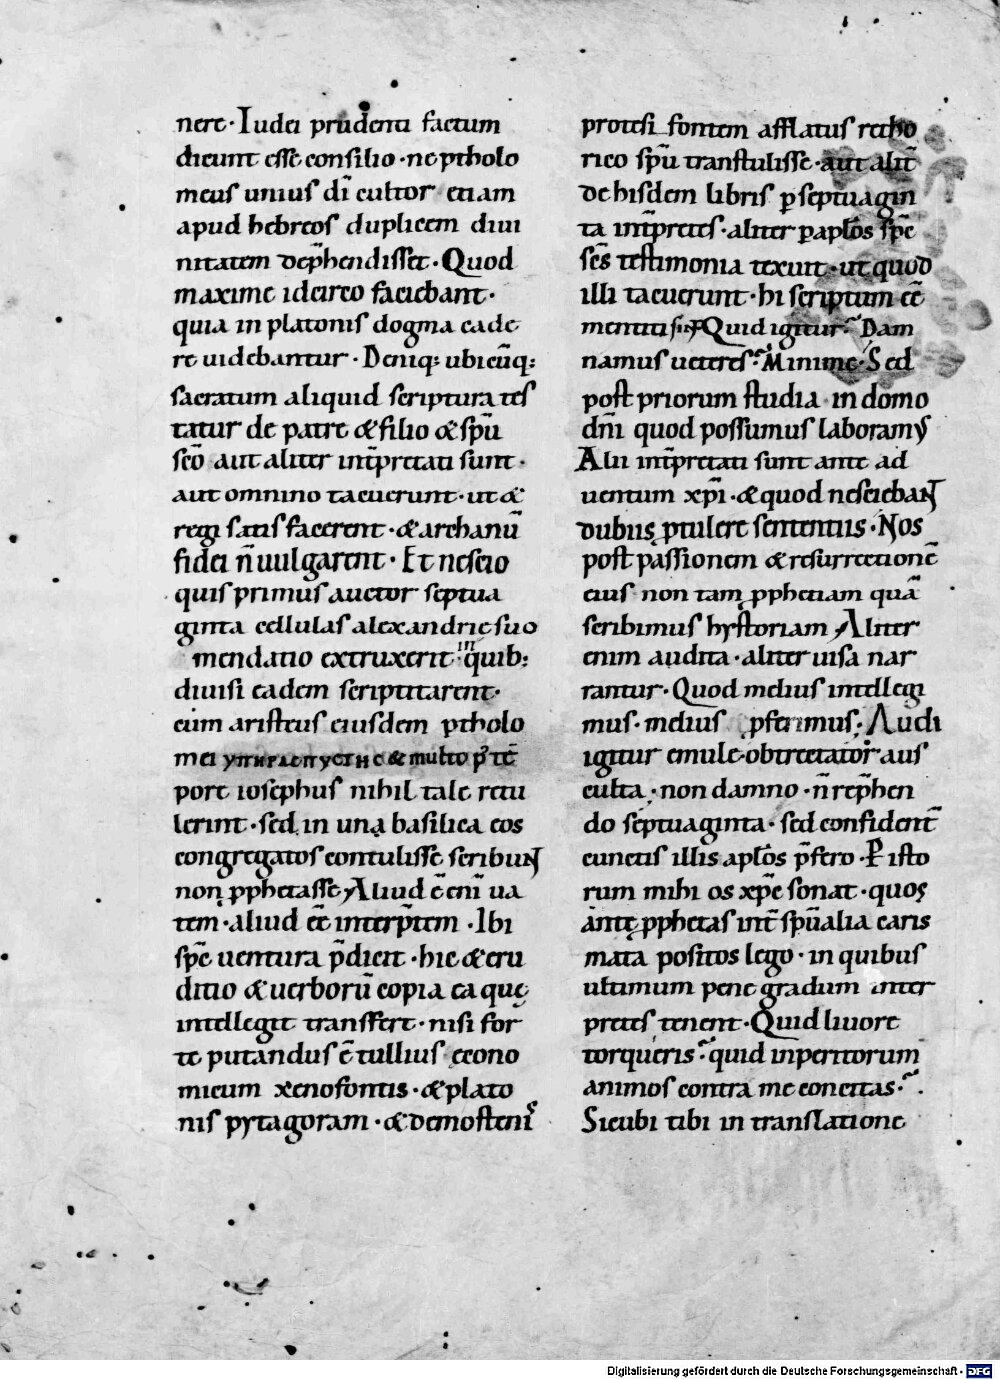 nere · Iudei prudenti factum
dicunt esse consilio · ne ptholo
meus unius dī cultor etiam
apud hebreos duplicem diui
nitatem dep̄hendisset · Quod
maxime idcirco faciebant ·
quia in platonis dogma cade
re uidebantur · Deniq: ubicūq:
sacratum aliquid scriptura tes
tatur de patre & filio & spū
scō aut aliter int̄pretati sunt ·
aut omnino tacuerunt · ut &
regi satis facerent · & archanū
fidei n̄ uulgarent · Et nescio
quis primus auctor septua
ginta cellulas alexandrię suo
mendatio extruxerit in quib:
diuisi eadem scriptitarent ·
cum aristeus eiusdem ptholo
mei & multo p̄ tē
pore iosephus nihil tale retu
lerint · sed in una basilica eos
congregatos contulisse scribuN
non ꝓphetasse Aliud ē enī ua
tem · aliud eē interp̄tem · Ibi
spc̄ uentura p̄dicit · hic & eru
ditio & uerborū copia ea quę
intellegit transfert · nisi for
te putandus ē tullius ęcono
micum xenofontis · & plato
nis pytagoram · & demosteniˢ
protesi fontem afflatus retho
rico spū transtulisse · aut alit̄
de hisdem libris ꝑ septuagin
ta int̄pretes · aliter ꝑ aplōs spc̄
scs̄ testimonia texuit · ut quod
illi tacuerunt · hi scriptum eē
mentiti sint Quid igitur? Dam
namus ueteres? Minime · Sed
post priorum studia in domo
dn̄i quod possumus laboramus
Alii int̄pretati sunt ante ad
uentum xp̄i · & quod nesciebaN
dubiis ꝓtulere sententiis · Nos
post passionem & resurrectionē
eius non tam ꝓphetiam quā
scribimus hystoriam Aliter
enim audita · aliter uisa nar
rantur · Quod melius intellegi
mus · melius ꝓferimus · Audi
igitur emule · obtrectator aus
culta · non damno · n̄ rep̄hen
do septuaginta · sed confidenť
cunctis illis aplōs p̄fero · P isto
rum mihi os xpc̄ sonat · quos
ante ꝓphetas int̄ spūalia caris
mata positos lego · in quibus
ultimum pene gradum inter
pretes tenent · Quid liuore
torqueris? quid inperitorum
animos contra me concitas?
Sicubi tibi in translatione
Digitalisierung gefördert durch die Deutsche Forschungsgemeinschaft · DFG